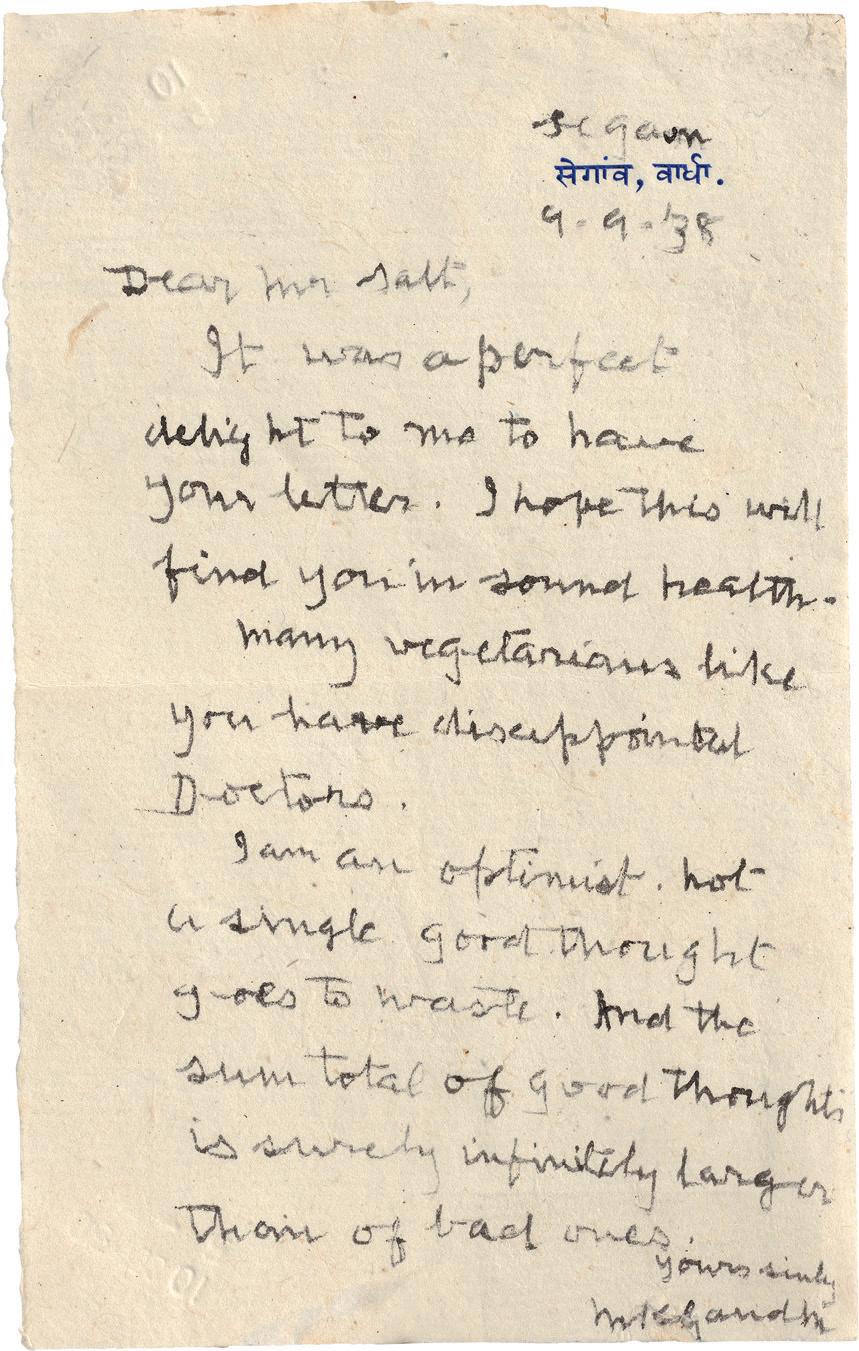 Segaon
सेगांव, वार्धा.
9-9-'38
Dear Mr Salt,
It was a perfect
delight to me to have
your letter. I hope this will
find you in sound health.
Many vegetarians like
you have disappointed
Doctors.
I am an optimist. Not
a single good thought
goes to waste. And the
sum total of good thoughts
is surely infinitely larger
than of bad ones.
Yours sinly
MKGandhi